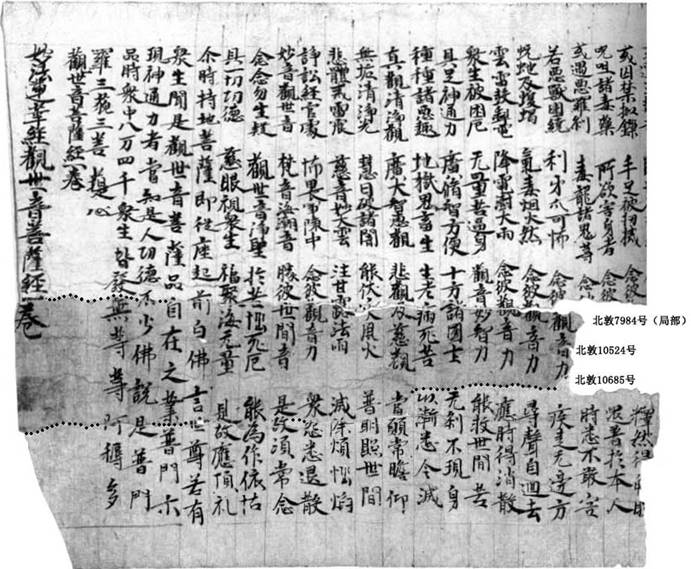 或囚禁枷鎖 手足被杻械 念彼 釋然得
呪咀諸毒藥 所欲害身者 念彼 還着於本人
或遇惡羅刹 毒龍諸鬼等 念彼 時悉不敢害
若惡獸圍繞 利牙爪可怖 念彼觀音力 疾走无邊方
蚖虵及蝮蝎 氣毒烟火然 念彼觀音力 尋聲自迴去
雲雷鼓掣電 降雹澍大雨 念彼觀音力 應時得消散
衆生被困厄 无量苦逼身 觀音妙智力 能救世間苦
具足神通力 廣脩智方便 十方諸國土 无刹不現身
種種諸惡趣 地獄鬼畜生 生老病死苦 以漸悉令滅
真觀清淨觀 廣大智惠觀 悲觀及慈觀 常願常瞻仰
無垢清淨光 慧日破諸闇 能伏灾風火 普明照世間
悲體戒雷震 慈音妙大雲 注甘露法雨 滅除煩惱焰
諍訟經官處 怖畏軍陣中 念彼觀音力 衆怨悉退散
妙音觀世音 梵音海潮音 勝彼世間音 是故須常念
念念勿生疑 觀世音淨聖 於苦惱死厄 能為作依怙
具一切功德 慈眼視衆生 福聚海无量 是故應頂礼
尒時持地菩薩即從座起前白佛言世尊若有
衆生聞是觀世音菩薩品自在之業普門示
現神通力者當知是人功德不少佛說是普門
品時衆中八万四千衆生皆發無等等阿耨多
羅三藐三菩提心
觀世音菩薩經一卷
妙法蓮華經觀世音菩薩經一卷
北敦7984号（局部）
北敦10524号
北敦10685号